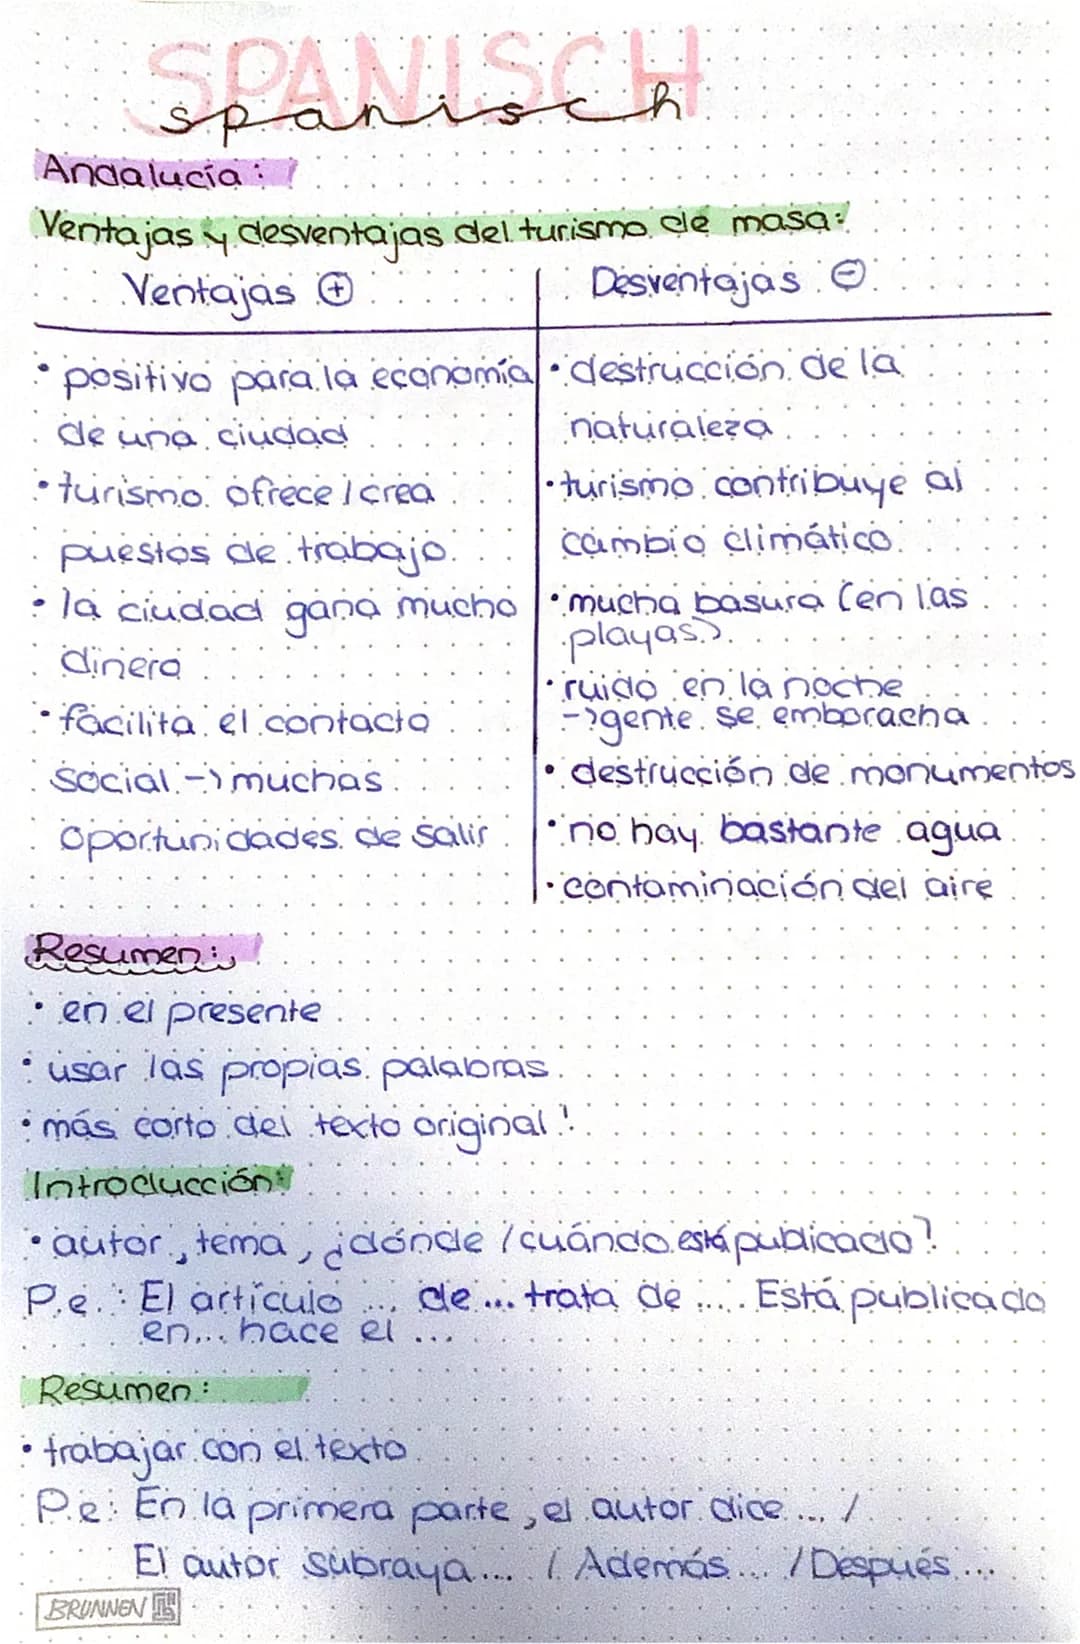 SPANISCH
spanisch
Andalucía:
Ventajas y desventajas del turismo de masa:
Ventajas +
Desventajas -
• positivo para la economía
de una ciudad
• turismo ofrece / crea
puestos de trabajo
• la ciudad gana mucho
dinero
• facilita el contacto
social -> muchas
oportunidades de salir
• destrucción de la
naturaleza
• turismo contribuye al
cambio climático
• mucha basura (en las
playas)
• ruido en la noche
-> gente se emboracha
• destrucción de monumentos
• no hay bastante agua
• contaminación del aire
Resumen:
• en el presente
• usar las propias palabras
• más corto del texto original!
Introducción:
• autor, tema, ¿dónde / cuándo está publicado?
P.e.: El artículo ... de ... trata de .... Está publicado
en... hace el ...
Resumen:
• trabajar con el texto
P.e: En la primera parte, el autor dice ... /
El autor subraya... / Además... / Después...
BRUNNEN